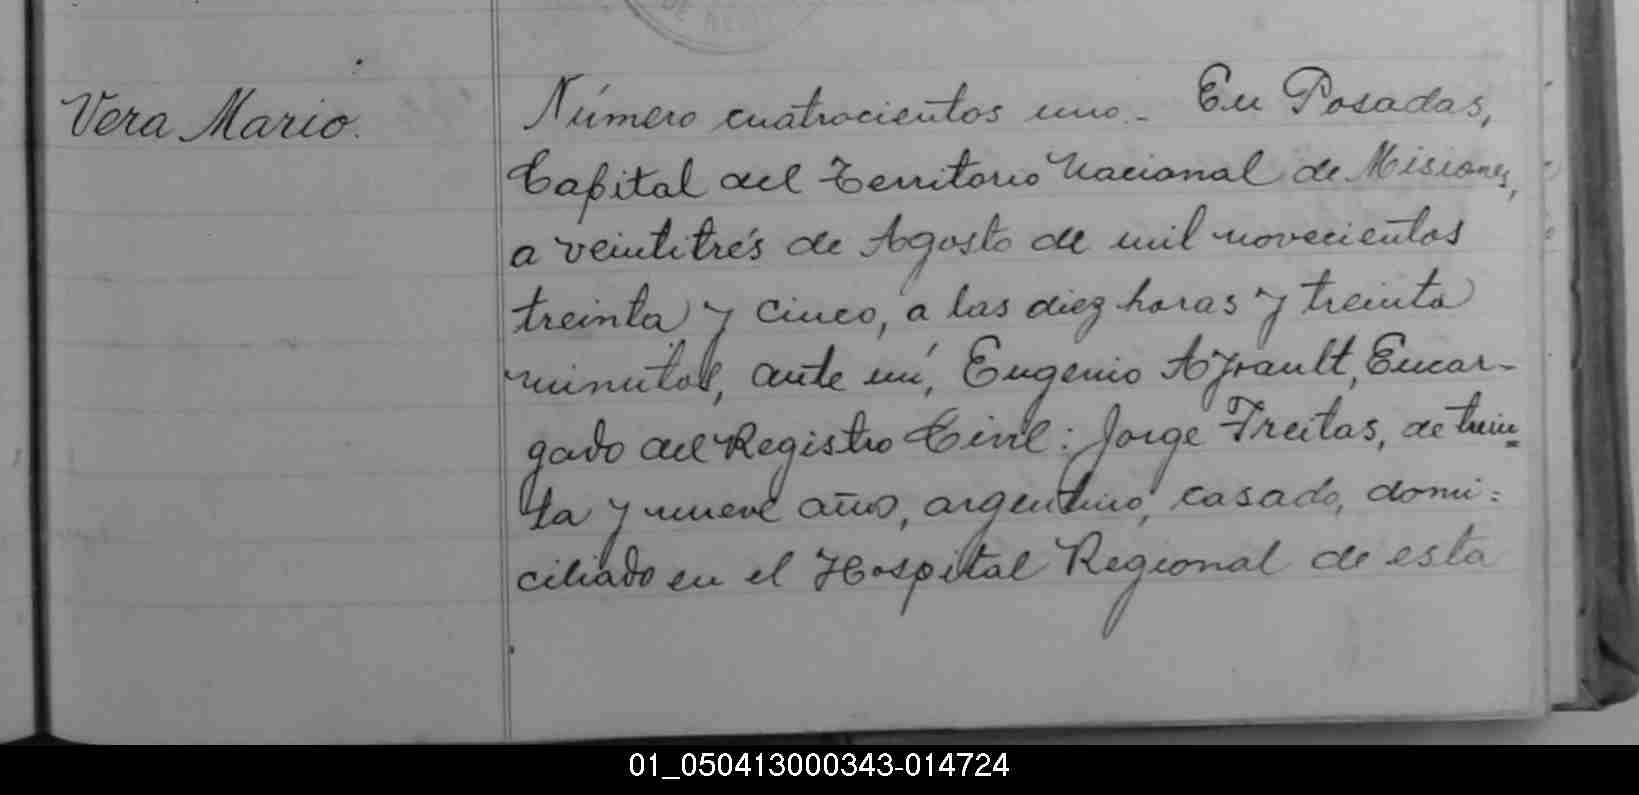 DE
Vera Mario.
Número cuatrocientos uno.- En Posadas,
Capital del Territorio Nacional de Misiones,
a veintitrés de Agosto de mil novecientos
treinta y cinco, a las diez horas y treinta
minutos, ante mí, Eugenio Ayrault, Encar-
gado del Registro Civil: Jorge Freitas, de trein=
ta y nueve años, argentino, casado, domi=
ciliado en el Hospital Regional de esta
01_050413000343-014724